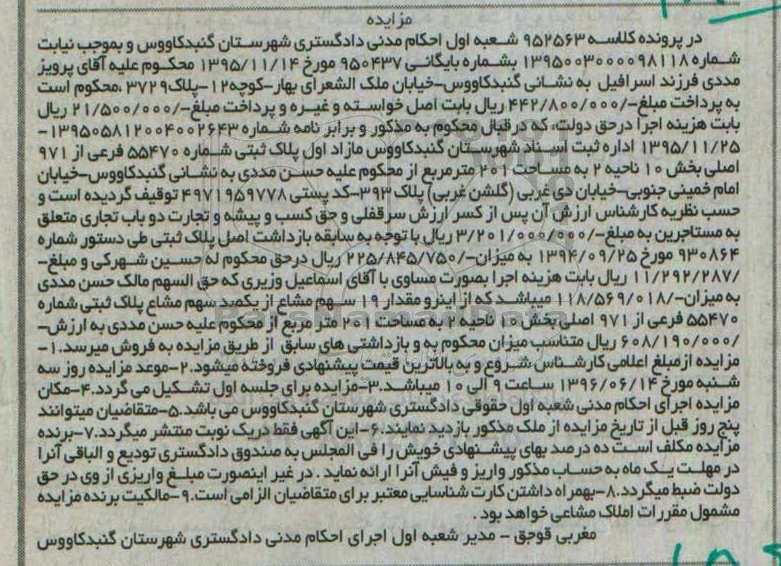 مزایده
در پرونده کلاسه ۹۵۲۵۶۳ شعبه اول احکام مدنی دادگستری شهرستان گنبدکاووس و بموجب نیابت
شماره ۱۳۹۵۰۰۳۰۰۰۰۹۸۱۱۸ بشماره بایگانی ۹۵۰۴۳۷ مورخ ۱۳۹۵/۱۱/۱۴ محکوم علیه آقای پرویز
مددی فرزند اسرافیل به نشانی گنبدکاووس-خیابان ملک الشعرای بهار-کوچه۱۲-پلاک۳۷۲۹ ،محکوم است
به پرداخت مبلغ-/۴۴۲/۸۰۰/۰۰۰ ریال بابت اصل خواسته و غیره و پرداخت مبلغ-/۲۱/۵۰۰/۰۰۰ ریال
بابت هزینه اجرا درحق دولت، که در قبال محکوم به مذکور و برابر نامه شماره ۱۳۹۵۰۵۸۱۲۰۰۴۰۰۲۶۴۳-
۱۳۹۵/۱۱/۲۵ اداره ثبت اسناد شهرستان گنبدکاووس مازاد اول پلاک ثبتی شماره ۵۵۴۷۰ فرعی از ۹۷۱
اصلی بخش ۱۰ ناحیه ۲ به مساحت ۲۰۱ مترمربع از محکوم علیه حسن مددی به نشانی گنبدکاووس-خیابان
امام خمینی جنوبی-خیابان دی غربی (گلشن غربی) پلاک ۳۹۳-کد پستی ۴۹۷۱۹۵۹۷۷۸ توقیف گردیده است و
حسب نظریه کارشناس ارزش آن پس از کسر ارزش سرقفلی و حق کسب و پیشه و تجارت دو باب تجاری متعلق
به مستاجرین به مبلغ-/۳/۲۰۱/۰۰۰/۰۰۰ ریال با توجه به سابقه بازداشت اصل پلاک ثبتی طی دستور شماره
۹۳۰۸۶۴ مورخ ۱۳۹۴/۰۹/۲۵ به میزان-/۲۲۵/۸۴۵/۷۵۰ ریال درحق محکوم له حسین شهرکی و مبلغ-
/۱۱/۲۹۲/۲۸۷ ریال بابت هزینه اجرا بصورت مساوی با آقای اسماعیل وزیری که حق السهم مالک حسن مددی
به میزان-/۱۱۸/۵۶۹/۰۱۸ میباشد که از اینرو مقدار ۱۹ سهم مشاع از یکصد سهم مشاع پلاک ثبتی شماره
۵۵۴۷۰ فرعی از ۹۷۱ اصلی بخش ۱۰ ناحیه ۲ به مساحت ۲۰۱ متر مربع از محکوم علیه حسن مددی به ارزش-
/۶۰۸/۱۹۰/۰۰۰ ریال متناسب میزان محکوم به و بازداشتی های سابق از طریق مزایده به فروش میرسد.۱-
مزایده ازمبلغ اعلامی کارشناس شروع و به بالاترین قیمت پیشنهادی فروخته میشود.۲-موعد مزایده روز سه
شنبه مورخ ۱۳۹۶/۰۶/۱۴ ساعت ۹ الی ۱۰ میباشد.۳-مزایده برای جلسه اول تشکیل می گردد.۴-مکان
مزایده اجرای احکام مدنی شعبه اول حقوقی دادگستری شهرستان گنبدکاووس می باشد.۵-متقاضیان میتوانند
پنج روز قبل از تاریخ مزایده از ملک مذکور بازدید نمایند.۶-این آگهی فقط دریک نوبت منتشر میگردد.۷-برنده
مزایده مکلف است ده درصد بهای پیشنهادی خویش را فی المجلس به صندوق دادگستری تودیع و الباقی آنرا
در مهلت یک ماه به حساب مذکور واریز و فیش آنرا ارائه نماید . در غیر اینصورت مبلغ واریزی از وی در حق
دولت ضبط میگردد.۸-بهمراه داشتن کارت شناسایی معتبر برای متقاضیان الزامی است.۹-مالکیت برنده مزایده
مشمول مقررات املاک مشاعی خواهد بود .
مغربی قوجق - مدیر شعبه اول اجرای احکام مدنی دادگستری شهرستان گنبدکاووس